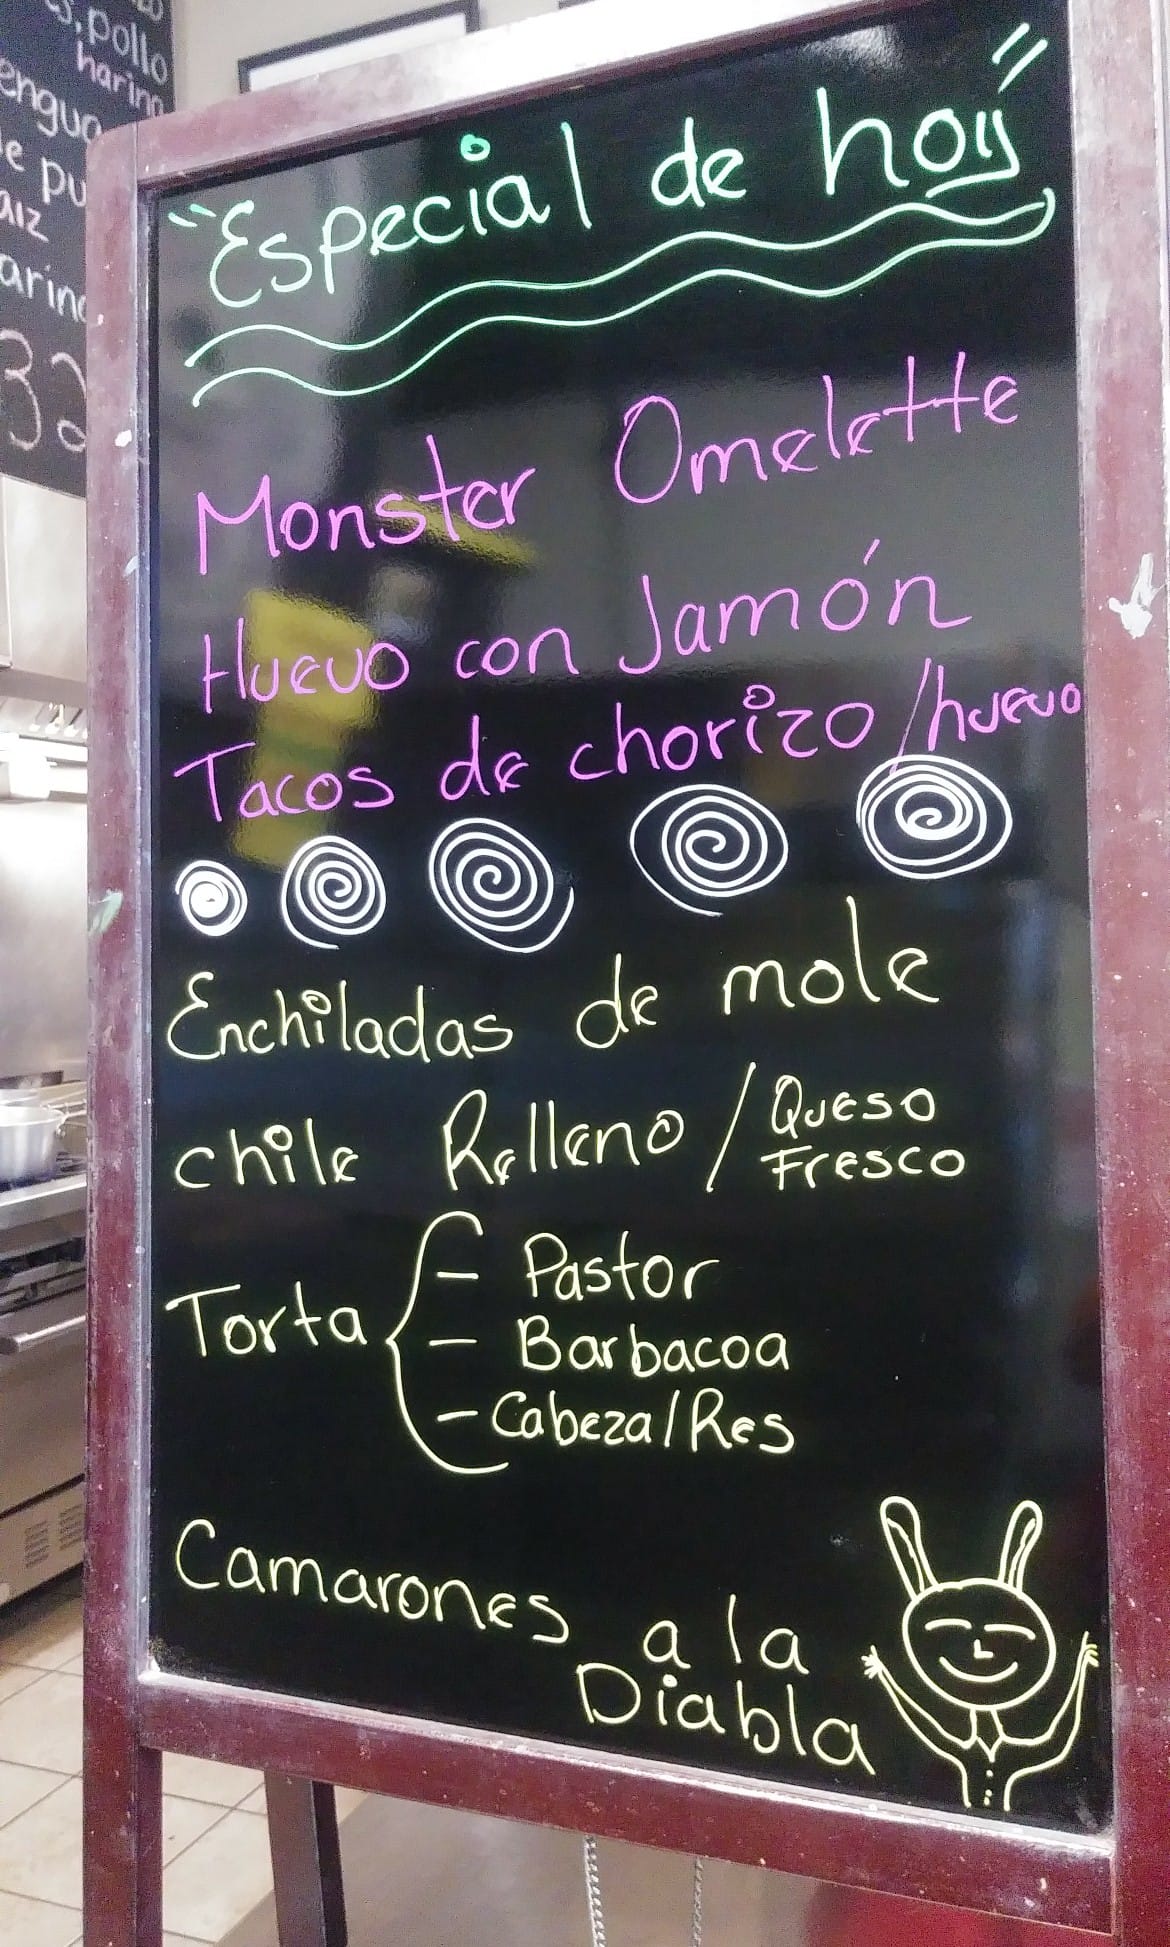 s, pollo
harina
engua
de pu
aiz
arina
32
"Especial de hoy"
Monster Omelette
Huevo con Jamón
Tacos de chorizo/huevo
Enchiladas de mole
chile Relleno / Queso Fresco
Torta
- Pastor
- Barbacoa
- Cabeza/Res
Camarones a la
Diabla